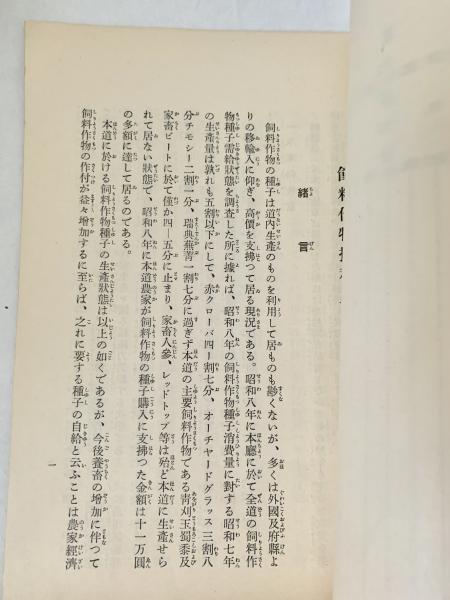 飼料作物採
緒言
飼料作物の種子は道内生産のものを利用して居ものも尠くないが、多くは外國及府縣よ
りの移輸入に仰ぎ、高價を支拂つて居る現況である。昭和八年に本廳に於て全道の飼料作
物種子需給狀態を調査した所に據れば、昭和八年の飼料作物種子消費量に對する昭和七年
の生產量は孰れも五割以下にして、赤クローバ四ー割七分、オーチヤードグラツス三割八
分チモシー二割一分、瑞典蕪菁一割七分に過ぎず本道の主要飼料作物である靑刈玉蜀黍及
家畜ビートに於て僅か四ー五分に止まり、家畜人參、レツドトツプ等は殆ど本道に生產せら
れて居ない狀態で、昭和八年に本道農家が飼料作物の種子購入に支拂つた金額は十一万圓
の多額に達して居るのである。
本道に於ける飼料作物種子の生產狀態は以上の如くであるが、今後養畜の增加に伴つて
飼料作物の作付が益々增加するに至らば、之れに要する種子の自給と云ふことは農家經濟
一